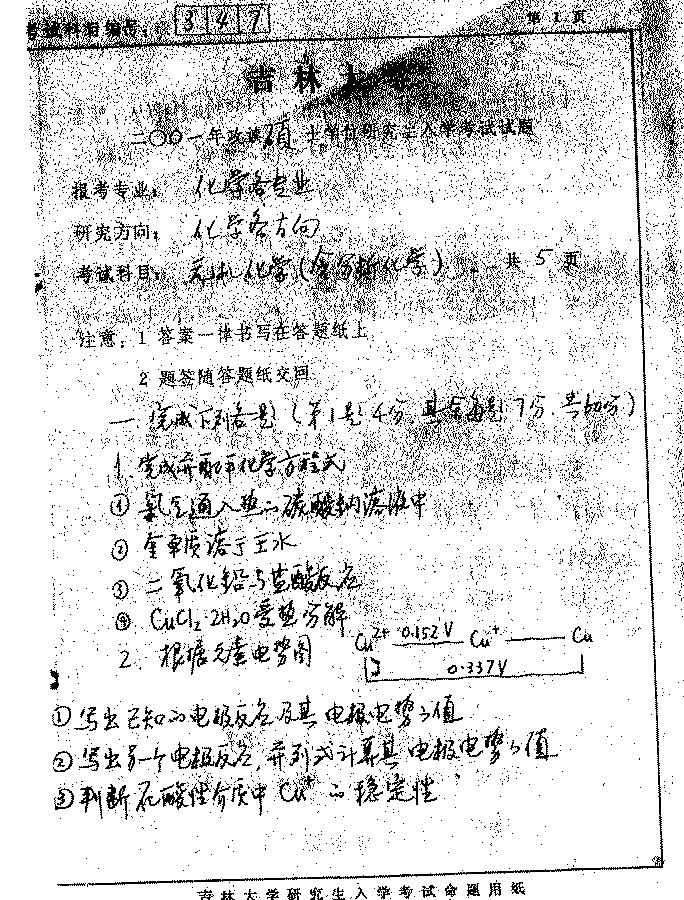 考试科目编号: 347 第1页
吉林大学
二〇〇一年攻读硕士学位研究生入学考试试题
报考专业: 化学各专业
研究方向: 化学各方向
考试科目: 无机化学(含分析化学) 共5页
注意: 1 答案一律书写在答题纸上
2 题签随答题纸交回
一 完成下列各题 (第1题4分, 其余每题7分, 共60分)
1. 完成并配平化学方程式
① 氯气通入热的碳酸钠溶液中
② 金单质溶于王水
③ 二氧化铅与盐酸反应
④ CuCl₂·2H₂O受热分解
2. 根据元素电势图 Cu²⁺ 0.152V Cu⁺ —— Cu
0.337V
① 写出已知的电极反应及其电极电势的值
② 写出另一个电极反应, 并列式计算其电极电势的值
③ 判断在酸性介质中Cu⁺的稳定性
吉林大学研究生入学考试命题用纸